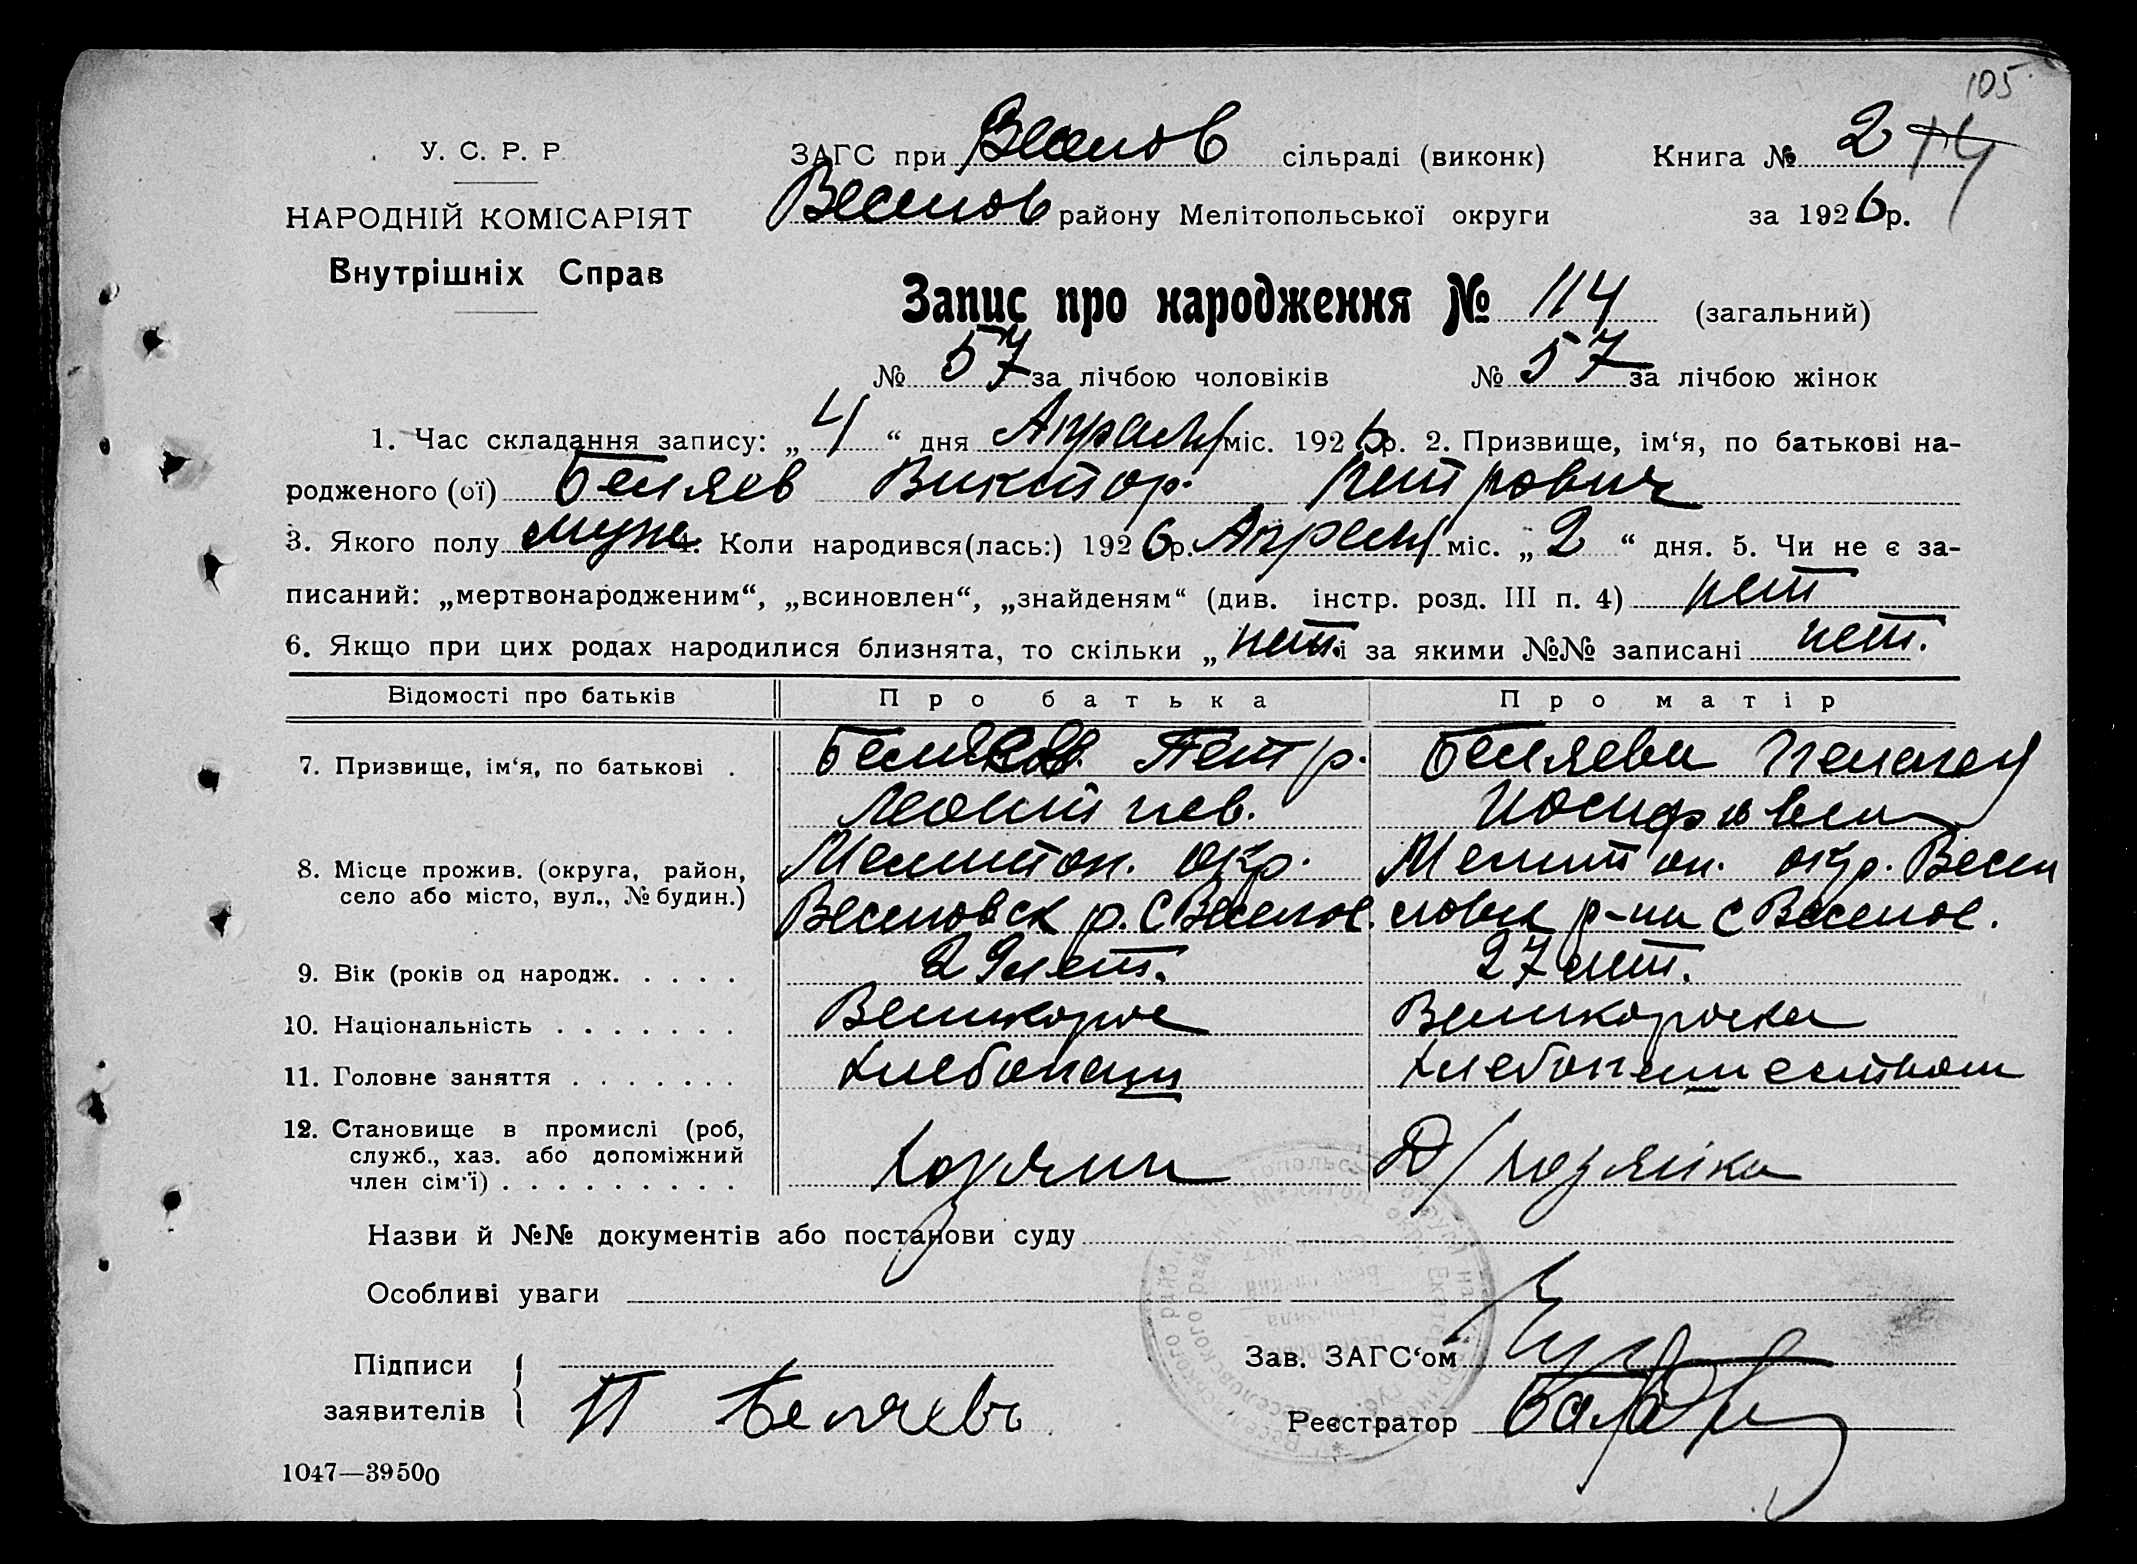 105
У. С. Р. Р.
НАРОДНІЙ КОМІСАРІЯТ
Внутрішніх Справ
ЗАГС при Веселов сільраді (виконк) Книга № 2
Веселов району Мелітопольської округи за 1926р.
Запис про народження № 114 (загальний)
№ 57 за лічбою чоловіків № 57 за лічбою жінок
1. Час складання запису: „4“ дня Апреля міс. 1926р. 2. Призвище, ім‘я, по батькові на-
родженого (ої) Беляев Виктор Петрович
3. Якого полу муж. 4. Коли народився(лась:) 1926р. Апреля міс. „2“ дня. 5. Чи не є за-
писаний: „мертвонародженим“, „всиновлен“, „знайденям“ (див. інстр. розд. III п. 4) нет
6. Якщо при цих родах народилися близнята, то скільки „нет. і за якими №№ записані нет.
Відомості про батьків Про батька Про матір
7. Призвище, ім‘я, по батькові . Беляев Петр. Беляева Пелагея
Леонтиев. Иосифовна
8. Місце прожив. (округа, район, Мелитоп. окр. Мелитоп. окр. Весел
село або місто, вул., № будин.) Веселовск р. С Веселое. ловск р-на С Веселое.
9. Вік (років од народж. . . . . 29 лет. 27 лет.
10. Національність . . . . . . . Великорос Великороска
11. Головне заняття . . . . . . . Хлебопащ Хлебопашеством
12. Становище в промислі (роб,
служб., хаз. або допоміжний Хозяин Д/хозяйка
член сім‘ї) . . . . . . . . . .
Назви й №№ документів або постанови суду
Особливі уваги
Підписи Зав. ЗАГС‘ом
заявителів П Беляевъ Реєстратор
1047—39500